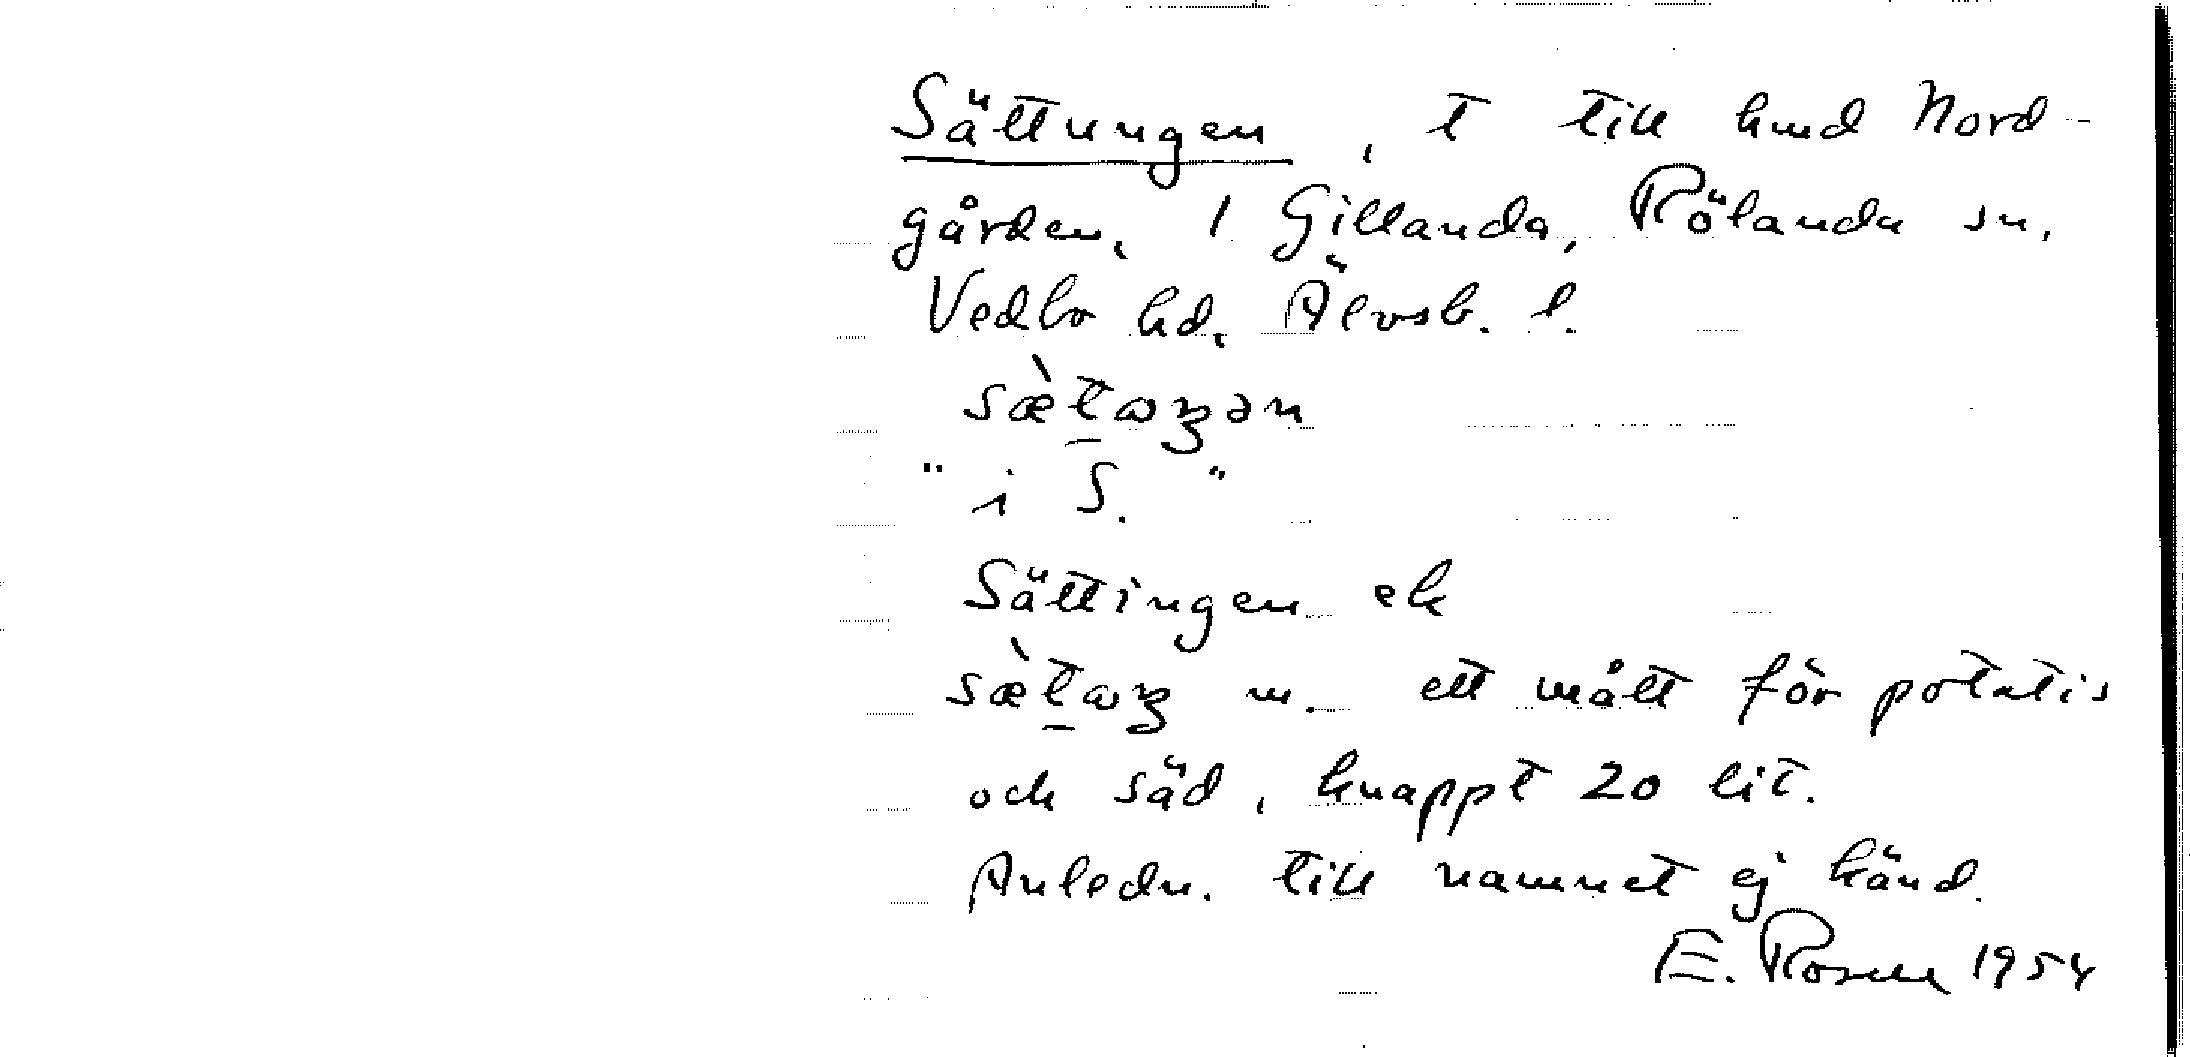 Sättungen, t till hmd Nord-
gården, 1 Gillanda, Rölanda sn,
Vedbo hd, Älvsb. l.
sæ̀t̲ɷꝫən
"i S."
Sättingen ek
sæ̀t̲ɷꝫ m. ett mått för potatis
och säd, knappt 20 lit.
Anledn. till namnet ej känd.
E. Rosell 1954